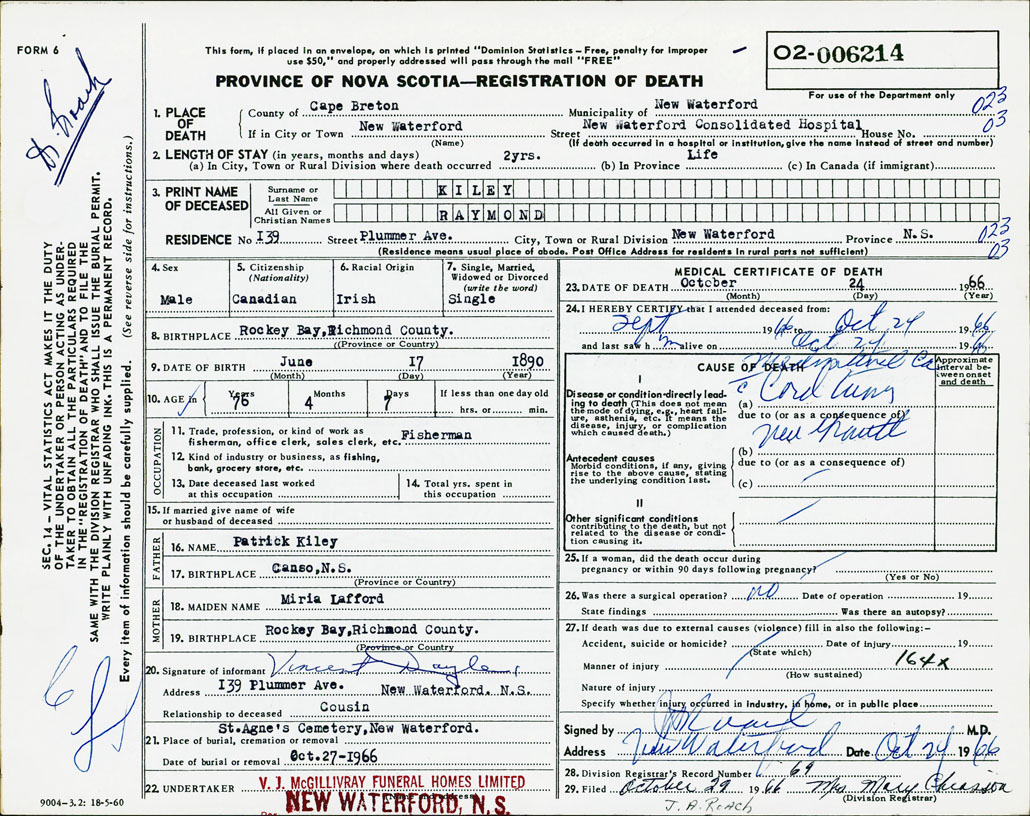 FORM 6
This form, if placed in an envelope, on which is printed "Dominion Statistics – Free, penalty for improper
use $50," and properly addressed will pass through the mail "FREE"
02-006214
For use of the Department only
PROVINCE OF NOVA SCOTIA—REGISTRATION OF DEATH
D. Roach
SEC. 14 – VITAL STATISTICS ACT MAKES IT THE DUTY
OF THE UNDERTAKER OR PERSON ACTING AS UNDER-
TAKER TO OBTAIN ALL THE PARTICULARS REQUIRED
IN THE "REGISTRATION OF DEATH" AND TO FILE THE
SAME WITH THE DIVISION REGISTRAR WHO SHALL ISSUE THE BURIAL PERMIT.
WRITE PLAINLY WITH UNFADING INK. THIS IS A PERMANENT RECORD.
Every item of information should be carefully supplied. (See reverse side for instructions.)
1. PLACE OF DEATH
County of Cape Breton Municipality of New Waterford 023
If in City or Town New Waterford Street New Waterford Consolidated Hospital House No. 03
(Name) (If death occurred in a hospital or institution, give name instead of street and number)
2. LENGTH OF STAY (in years, months and days)
(a) In City, Town or Rural Division where death occurred 2yrs. (b) In Province Life (c) In Canada (if immigrant)
3. PRINT NAME OF DECEASED
Surname or Last Name KILEY
All Given or Christian Names RAYMOND
RESIDENCE No I39 Street Plummer Ave. City, Town or Rural Division New Waterford Province N.S. 023
(Residence means usual place of abode. Post Office Address for residents in rural parts not sufficient) 03
4. Sex Male
5. Citizenship (Nationality) Canadian
6. Racial Origin Irish
7. Single, Married, Widowed or Divorced (write the word) Single
8. BIRTHPLACE Rockey Bay,Richmond County.
(Province or Country)
9. DATE OF BIRTH June 17 1890
(Month) (Day) (Year)
10. AGE in Years 76 Months 4 Days 7 If less than one day old hrs. or min.
OCCUPATION
11. Trade, profession, or kind of work as
fisherman, office clerk, sales clerk, etc. Fisherman
12. Kind of industry or business, as fishing,
bank, grocery store, etc.
13. Date deceased last worked
at this occupation
14. Total yrs. spent in
this occupation
15. If married give name of wife
or husband of deceased
FATHER
16. NAME Patrick Kiley
17. BIRTHPLACE Canso,N.S.
(Province or Country)
MOTHER
18. MAIDEN NAME Miria Lafford
19. BIRTHPLACE Rockey Bay,Richmond County.
(Province or Country
20. Signature of informant Vincent
Address I39 Plummer Ave. New Waterford. N.S.
Relationship to deceased Cousin
St.Agne's Cemetery,New Waterford.
21. Place of burial, cremation or removal
Date of burial or removal Oct.27-1966
22. UNDERTAKER V. J. McGILLIVRAY FUNERAL HOMES LIMITED
NEW WATERFORD, N. S.
9004-3.2: 18-5-60
MEDICAL CERTIFICATE OF DEATH
23. DATE OF DEATH October 24 1966
(Month) (Day) (Year)
24. I HEREBY CERTIFY that I attended deceased from:
Sept 1966 to Oct 24 1966
and last saw h m alive on Oct 24 1966
CAUSE OF DEATH
Approximate interval be-tween onset and death
I
Disease or condition directly lead-
ing to death (This does not mean
the mode of dying, e.g., heart fail-
ure, asthenia, etc. It means the
disease, injury, or complication
which caused death.)
(a)
due to (or as a consequence of)
Antecedent causes
Morbid conditions, if any, giving
rise to the above cause, stating
the underlying condition last.
(b)
due to (or as a consequence of)
(c)
II
Other significant conditions
contributing to the death, but not
related to the disease or condi-
tion causing it.
25. If a woman, did the death occur during
pregnancy or within 90 days following pregnancy?
(Yes or No)
26. Was there a surgical operation? no Date of operation 19
State findings Was there an autopsy?
27. If death was due to external causes (violence) fill in also the following:–
Accident, suicide or homicide? Date of injury 19
(State which)
Manner of injury 164x
(How sustained)
Nature of injury
Specify whether injury occurred in Industry, in home, or in public place
Signed by M.D.
Address New Waterford Date Oct 24 1966
28. Division Registrar's Record Number 69
29. Filed October 29 1966 Mrs Mary Chiasson
(Division Registrar)
J. A. ROACH